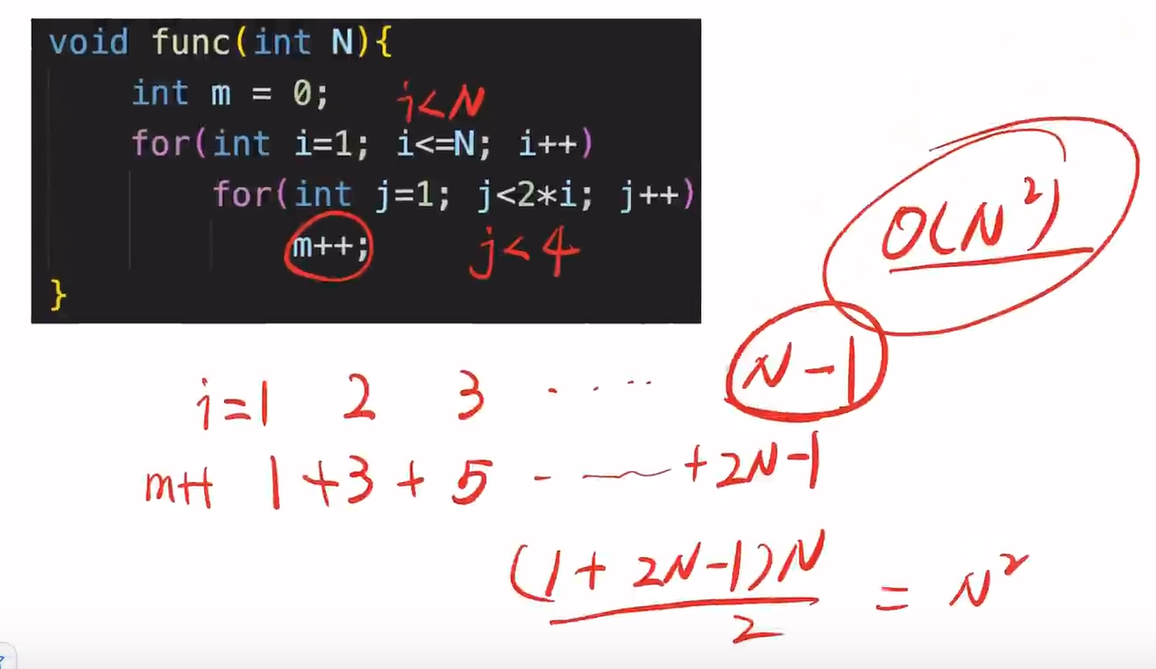 void func(int N){
int m = 0;
i<N
for(int i=1; i<=N; i++)
for(int j=1; j<2*i; j++)
m++; j<4
}
O(N²)
N-1
i=1 2 3 ·····
m++ 1+3+5 - — +2N-1
(1+2N-1)N
2
= N²